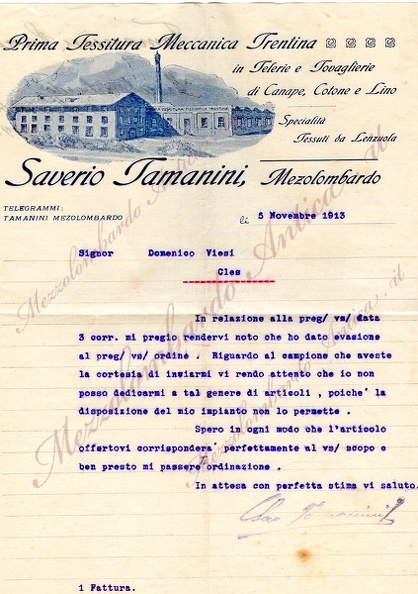 Prima Tessitura Meccanica Trentina
in Telerie e Tovaglierie
di Canape, Cotone e Lino
Specialità
Tessuti da Lenzuola
Saverio Tamanini, Mezolombardo
TELEGRAMMI:
TAMANINI MEZOLOMBARDO
li 5 Novembre 1913
Signor Domenico Viesi
Cles
In relazione alla preg/ vs/ data
3 corr. mi pregio rendervi noto che ho dato evasione
al preg/ vs/ ordine . Riguardo al campione che aveste
la cortesia di inviarmi vi rendo attento che io non
posso dedicarmi a tal genere di articoli , poiche' la
disposizione del mio impianto non lo permette .
Spero in ogni modo che l'articolo
offertovi corrispondera' perfettamente al vs/ scopo e
ben presto mi passere ordinazione .
In attesa con perfetta stima vi saluto.
Tamanini
1 Fattura.
Mezzolombardo Antica . it
Mezzolombardo Antica . it